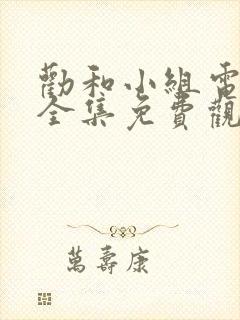 勸和小組電
全集免費觀
萬壽康